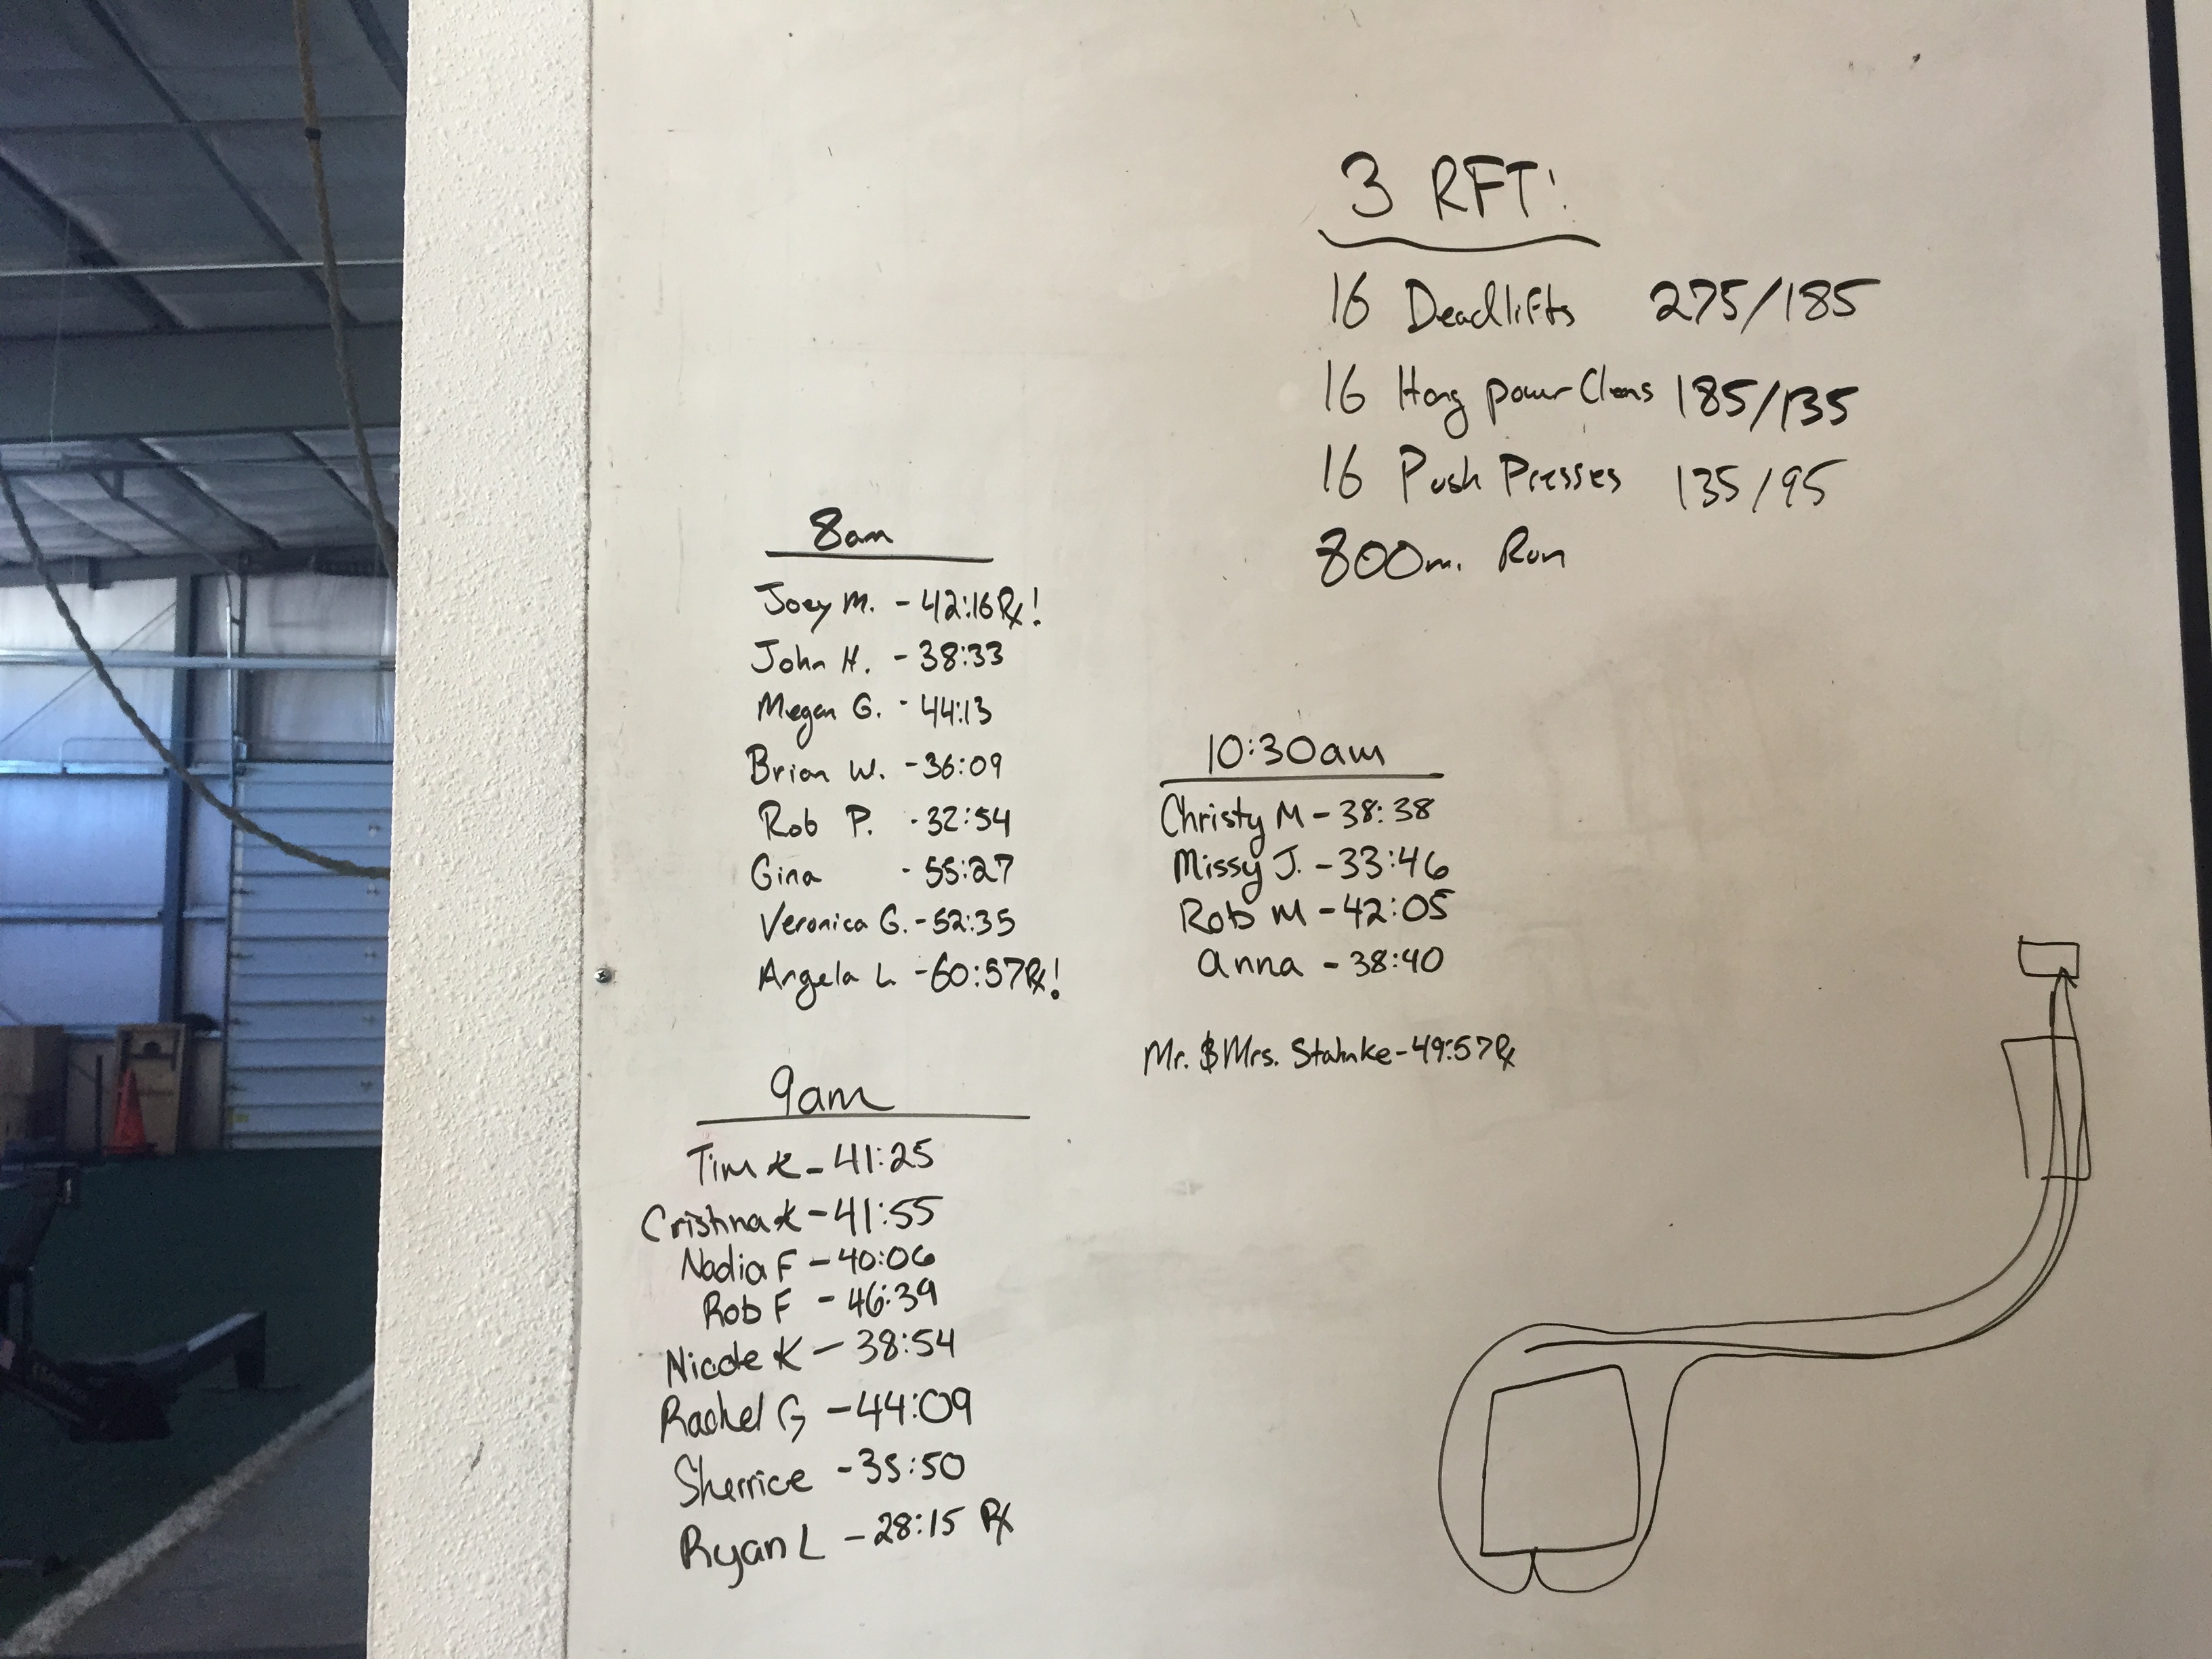 3 RFT:
16 Deadlifts 275/185
16 Hang power Cleans 185/135
16 Push Presses 135/95
800m. Run
8am
Joey M. - 42:16 Rx!
John H. - 38:33
Megan G. - 44:13
Brian W. - 36:09
Rob P. - 32:54
Gina - 55:27
Veronica G. - 52:35
Angela L - 60:57 Rx!
9am
Tim K - 41:25
Cristina K - 41:55
Nadia F - 40:06
Rob F - 46:39
Nicole K - 38:54
Rachel G - 44:09
Sherrice - 35:50
Ryan L - 28:15 Rx
10:30am
Christy M - 38:38
Missy J. - 33:46
Rob M - 42:05
Anna - 38:40
Mr. & Mrs. Stahnke - 49:57 Rx